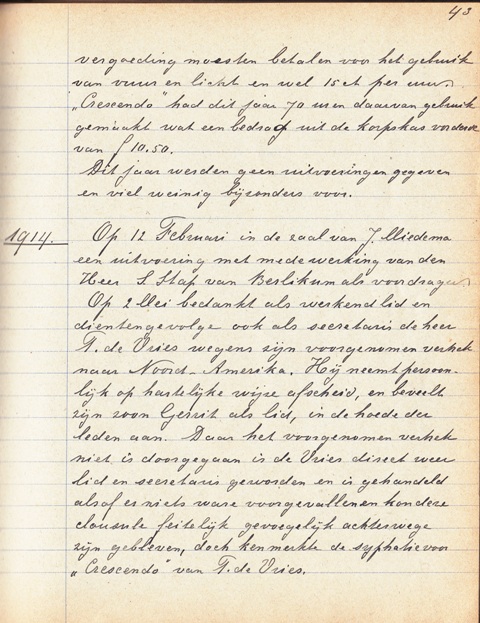 43
vergoeding moesten betalen voor het gebruik
van vuur en licht en wel 15 ct per uur.
„Crescendo" had dit jaar 70 uren daarvan gebruik
gemaakt wat een bedrag uit de korpskas vorderde
van f 10.50.
Dit jaar werden geen uitvoeringen gegeven
en viel weinig bijzonders voor.
1914. Op 12 Februari in de zaal van J. Miedema
een uitvoering met medewerking van den
Heer S. Stap van Berlikum als voordrager.
Op 2 Mei bedankt als werkend lid en
dientengevolge ook als secretaris de heer
T. de Vries wegens zijn voorgenomen vertrek
naar Noord-Amerika. Hij neemt persoon-
lijk op hartelijke wijze afscheid, en beveelt
zijn zoon Gerrit als lid, in de hoede der
leden aan. Daar het voorgenomen vertrek
niet is doorgegaan is de Vries direct weer
lid en secretaris geworden en is gehandeld
alsof er niets ware voorgevallen en kon deze
clausule feitelijk gevoegelijk achterwege
zijn gebleven, doch kenmerkte de syphatie voor
„Crescendo" van T. de Vries.